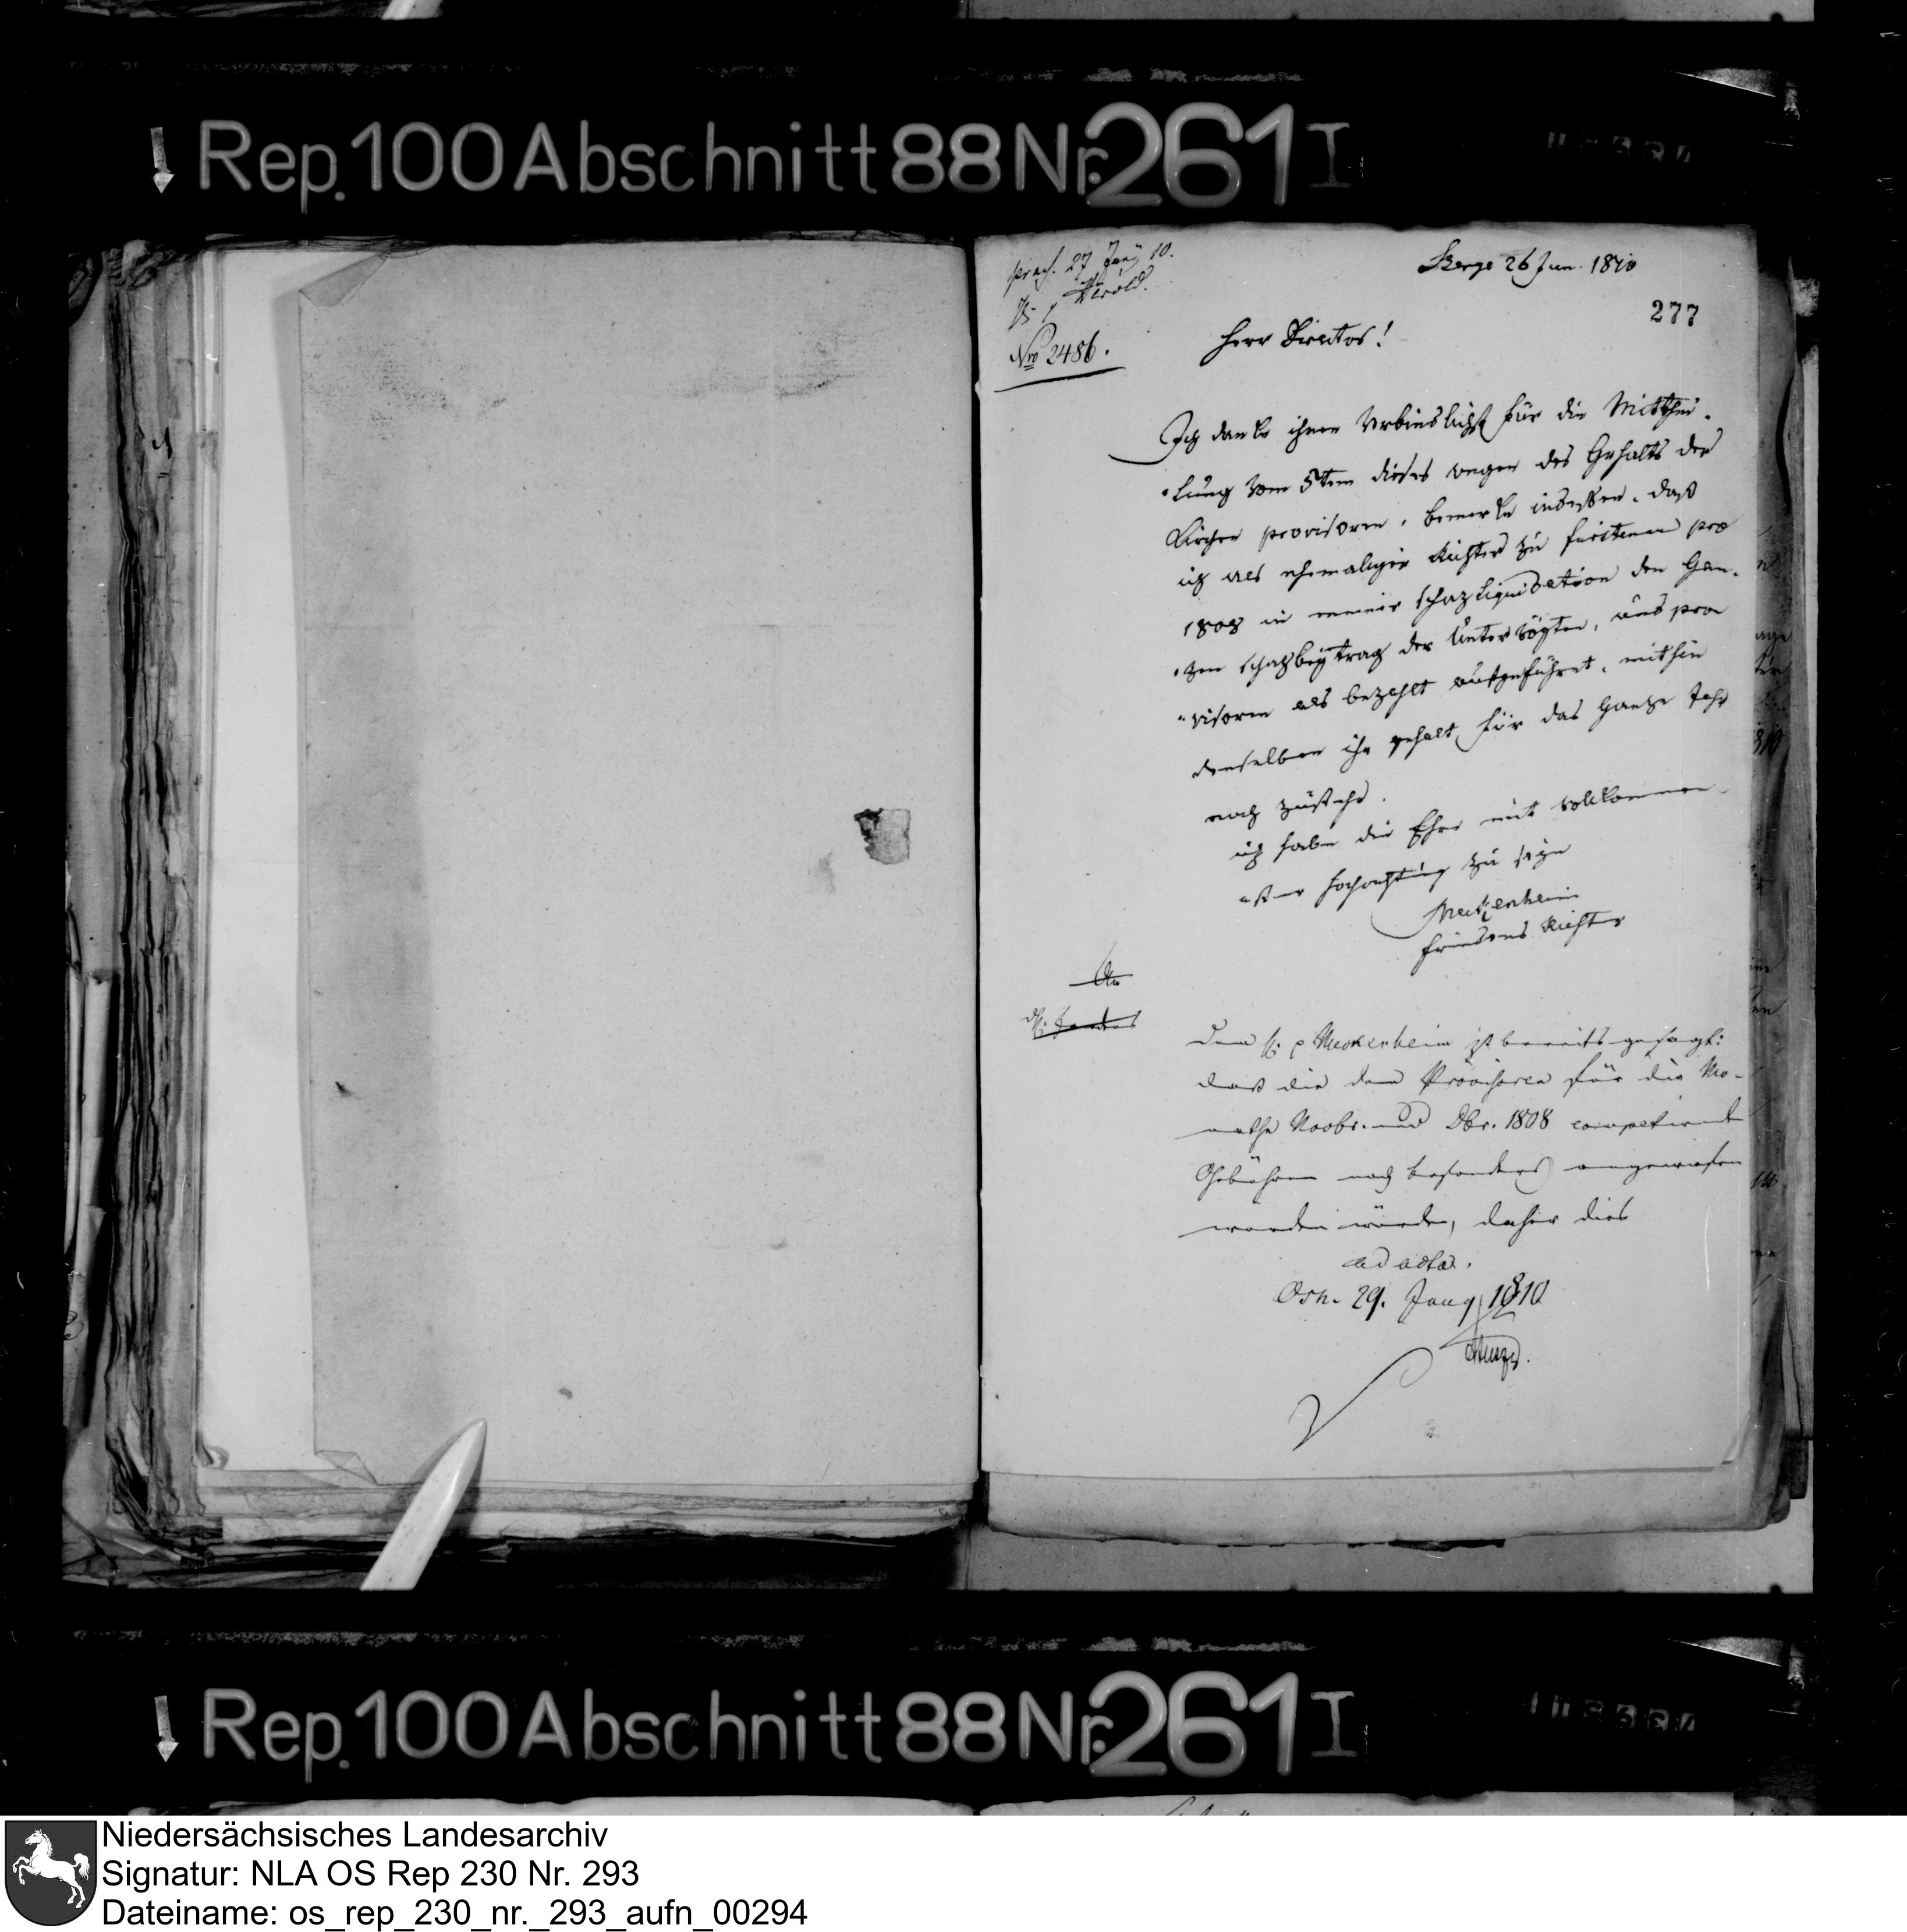 Rep. 100 Abschnitt 88 Nr. 261 I
praes. 27 Juny 10.
Herold.
Nro 2486.
Berge 26 Jun. 1810
277
Herr Director!
Ich danke ihnen verbindlichst für die Mitthei-
-lung vom 5tem dieses wegen des Gehalts der
Kirchen provisoren, bemerke indessen, daß
ich als ehemaliger Richter zu fürstenau pro
1808 in meiner schazliquidation den Gan-
-zen schazbeytrag der Untervögten, und pro
-visoren als bezahlt aufgeführet, mithin
denselben ihr gehalt für das Ganze Jahr
noch zustehe.
ich habe die Ehre mit vollkommen-
-ster hochachtung zu seyn
Meckenheim
friedens Richter
An
Dem H. p Meckenheim ist bereits gesagt:
daß die dem Provisoren für die Mo-
nathe Novbr. und Dbr. 1808 competirende
Gebühren noch besonders angewiesen
werden würden, daher dies
ad acta.
Osn. 29. Juny 1810
Rep. 100 Abschnitt 88 Nr. 261 I
Niedersächsisches Landesarchiv
Signatur: NLA OS Rep 230 Nr. 293
Dateiname: os_rep_230_nr._293_aufn_00294